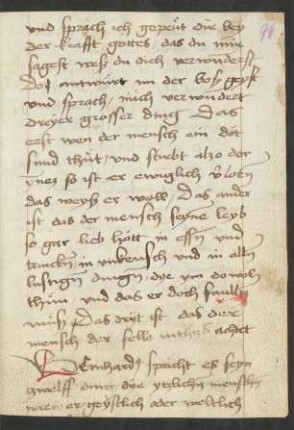 und sprach ich gepeüt dir bey
der krafft gottes, das du mir
sagest weß du dich verwunderst
Do antwurt im der böß geyst
und sprach, mich verwundert
dreyer grosser ding Das
erst wen der mensch ein dot
sund thut, und stirbt also der
ynez so ist er ewiglich vlorn
das weyß er woll, Das ander
ist das der mensch seyne leyb
so gar lieb hatt in essn und
trincken in unkeusch und in alln
lustigen dingen, dye ym do woln
thun, und das er doch faulln
muß, Das drit ist, das der
mensch der selle nichtz achtet
Bernhardus spricht es seyn
zwelff ding dye ytzlichn menschn
wern er geystlich oder weltlich